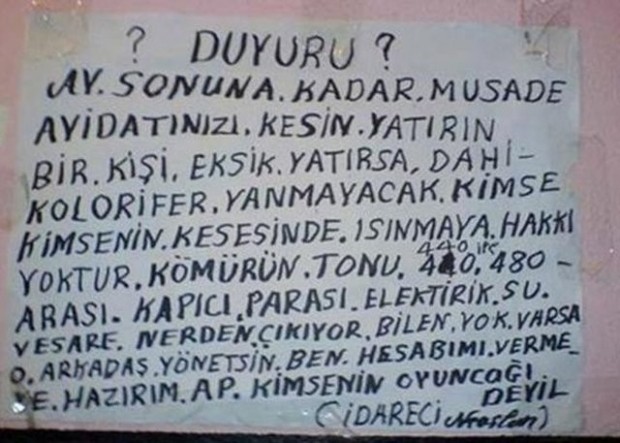 ? DUYURU ?
AY. SONUNA. KADAR. MUSADE
AYİDATINIZI. KESİN. YATIRIN
BİR. KİŞİ, EKSİK. YATIRSA, DAHİ-
KOLORİFER. YANMAYACAK. KİMSE
KİMSENİN. KESESİNDE. ISINMAYA. HAKKI
YOKTUR. KÖMÜRÜN. TONU. 440 ile 480 -
ARASI. KAPICI. PARASI. ELEKTİRİK. SU.
VESARE. NERDEN. ÇIKIYOR. BİLEN. YOK. VARSA
O. ARKADAŞ. YÖNETSİN. BEN. HESABIMI. VERME_
YE. HAZIRIM. AP. KİMSENİN OYUNCAĞI
DEYİL
(İDARECİ